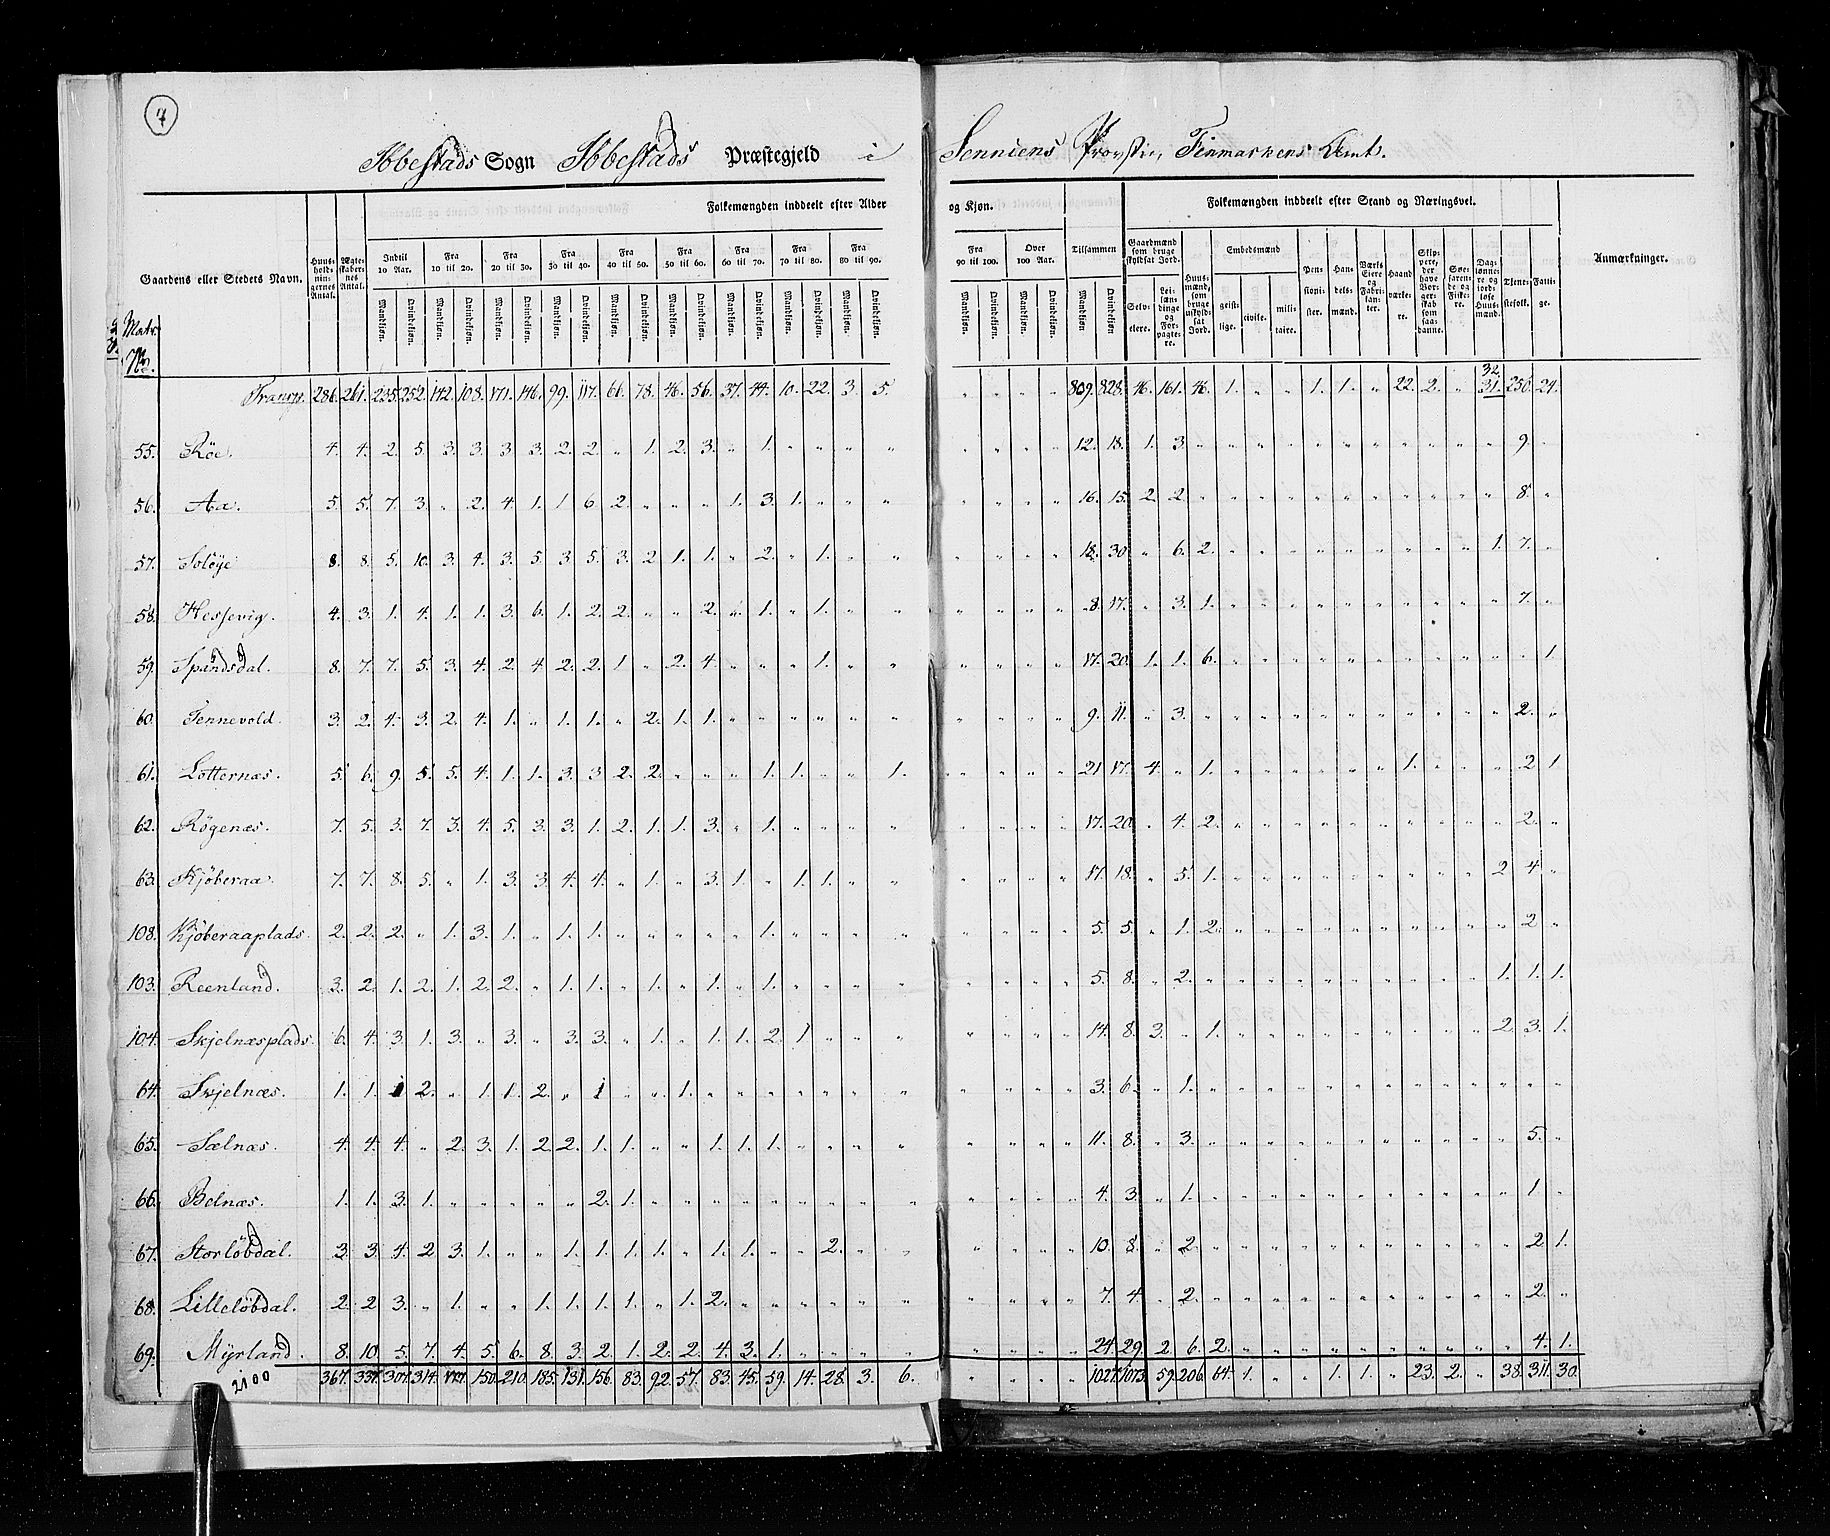 7
Ibbestads Sogn Ibbestads Præstegjeld i Senniens Provstie, Finmarkens Amt.
Folkemængden inddeelt efter Alder og Kjøn.
Folkemængden inddeelt efter Stand og Næringsvei.
Gaardens eller Steders Navn.
Huusholdningernes Antal.
Ægteskabernes Antal.
Indtil 10 Aar. Fra 10 til 20. Fra 20 til 30. Fra 30 til 40. Fra 40 til 50. Fra 50 til 60. Fra 60 til 70. Fra 70 til 80. Fra 80 til 90. Fra 90 til 100. Over 100 Aar. Tilsammen
Mandkjøn. Qvindekjøn.
Gaardmænd som bruge skyldsat Jord.
Selveiere. Leilændinge og Forpagtere.
Huusmænd, som bruge uskyldsat Jord.
Embedsmænd
geistlige. civile. militaire.
Pensionister. Handelsmænd. Værks Eiere og Fabrikanter. Haandværkere. Skippere, der have Borgerskab som saadanne. Søefarende og Fiskere. Daglønnere og jordløse Huusmænd. Tjenestefolk. Fattige.
Anmærkninger.
Matr. No.
Transp. 286. 261. 235. 252. 142. 108. 171. 146. 99. 117. 66. 78. 46. 56. 37. 44. 10. 22. 3. 5. " " " " 809. 828. 46. 161. 46. 1. " " 1. 1. " 22. 2. " 32. 31. 256. 24.
55. Röe. 4. 4. 2. 5. 3. 3. 3. 3. 2. 2. " 1. 2. 3. " 1. " " " " " " " " 12. 18. 1. 3. " " " " " " " " " " " 9. "
56. Aa. 5. 5. 7. 3. " 2. 4. 1. 1 6 2. " " " 1. 3. 1. " " " " " " " 16. 15. 2. 2. " " " " " " " " " " " 8. "
57. Soløje 8. 8. 5. 10. 3. 4. 3. 5. 3. 5. 3. 2 1. 1. " 2. " 1. " " " " " " 18. 30 " 6. 2. " " " " " " " " " 1. 7. "
58. Hessevig. 4. 3. 1. 4. 1. 1. 3. 6. 1. 2. 2. " " 2. " 1. " 1. " " " " " " 8. 17. " 3. 1. " " " " " " " " " " 7. "
59. Spandsdal. 8. 7. 7. 5. 3. 4. 2. 4 2. 2. 1 " 2. 4. " " " 1. " " " " " " 17. 20. 1. 1. 6. " " " " " " " " " " " 1.
60. Tennevold. 3. 2. 4. 3. 2. 4. 1. " 1. 1. " 2. 1. 1. " " " " " " " " " " 9. 11. " 3. " " " " " " " " " " " 2. "
61. Lotternæs. 5. 6. 9. 5. 5. 4. 1. 1. 3. 3 2. 2. " " " 1. 1. " " 1. " " " " 21 17. 4. " 1. " " " " " " 1. " " " 2 1
62. Rögenæs. 7. 5. 3. 7. 3. 4. 5. 3. 3. 1. 2. 1. 1. 3. " 1. " " " " " " " " 17. 20. " 4. 2. " " " " " " " " " " 2. "
63. Kjöberaa. 7. 7. 8. 5. " 1. 3. 3. 4. 4. " 1. " 3. 1. " 1. 1. " " " " " " 17. 18. " 5. 1. " " " " " " " " " 2 4. "
108. Kjöberaaplads. 2. 2. 2. " 1. 3. 1. " 1. 1. " " " " " 1. " " " " " " " " 5. 5. " 1. 2. " " " " " " " " " " 2 "
103. Reenland. 3. 2. 1. 2. 1. 2. 2. " 1. 1. " 1. " 1. " 1. " " " " " " " " 5. 8. " 2. " " " " " " " " " " 1. 1. 1.
104. Skjelnæsplads. 6. 4. 3. 1. 3. " 3. " 3. 3. " 1. " 1. 1. 2. 1 " " " " " " " 14. 8. 3. " 1. " " " " " " " " " 2. 3. 1.
64. Skjelnæs. 1. 1. 1 2. " 1. 1. 2. " 1 " " 1. " " " " " " " " " " " 3. 6. " 1. " " " " " " " " " " " " "
65. Sælnæs. 4. 4. 4. " 2. 3. 1. 2. 2. 1. 1. " " 1. 1. 1. " " " " " " " " 11. 8. " 3. " " " " " " " " " " " 5. "
66. Belnæs. 1. 1. 3. 1. " " " " " 2. 1. " " " " " " " " " " " " " 4. 3. " 1. " " " " " " " " " " " 1. "
67. Storløbdal. 3. 3. 4. 2. 3. 1. " " 1. 1. 1. 1. " 1. 1. " " 2. " " " " " " 10. 8. " 2. " " " " " " " " " " " 2. 1.
68. Lilleløbdal. 2. 2 3. " 1. " " 1. 1. 1. 1. " 1. 2. " " " " " " " " " " 7. 4. " 2. " " " " " " " " " " " 2. "
69. Myrland. 8. 10. 5. 7. 4. 5. 6. 8. 3. 2. 1. 2. 2. 4. 3. 1. " " " " " " " " 24. 29. 2. 6. 2. " " " " " " " " " " 4. 1.
2100 367. 337. 307. 314. 177. 150. 210. 185. 131. 156. 83. 92. 57. 83. 45. 59. 14. 28. 3. 6. " " " " 1027. 1073. 59. 206. 64. 1. " " 1. 1. " 23. 2. " 38. 311. 30.